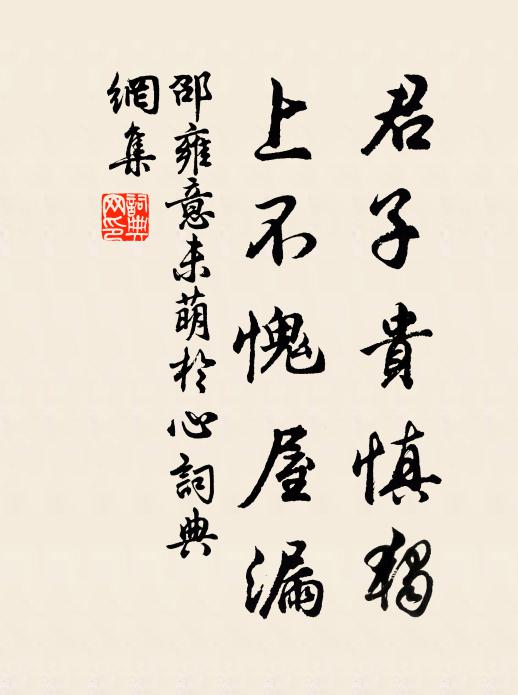 君子貴慎獨
上不愧屋漏
邵雍意未萌於心詞典
網集
詞典
网印